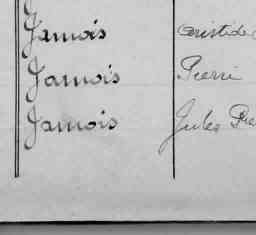 Jamois Aristide
Jamois Pierre
Jamois Jules Pie